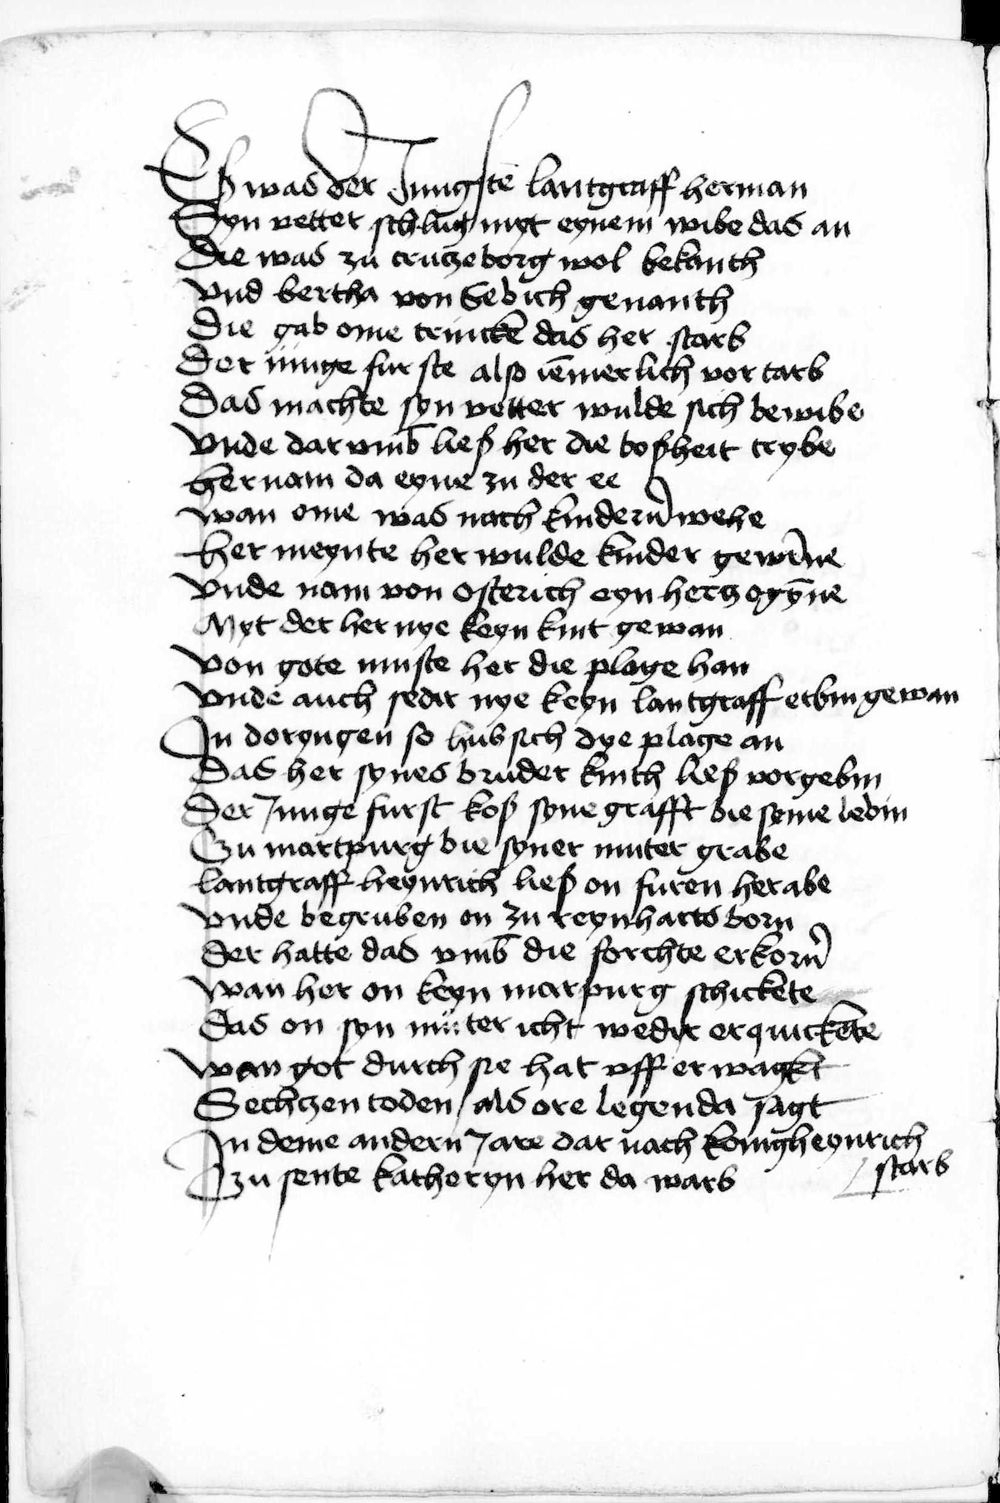 Eß was der Jungste lantgraff herman
Syn vetter schlug myt eynem wibe das an
Die was zu cruczeborg wol bekanth
Vnd bertha von Sebich genanth
Die gab ome trincken das her starb
Der iunge furste also iemerlich vortarb
Das machte syn vetter wulde sich bewibe
Vnde dar vmb ließ her die boßheit trybe
her nam da eyne zu der ee
wan ome was nach kindern wehe
her meynte her wulde kinder gewinne
Vnde nam von osterich eyn herczogynne
Myt der her nye keyn kint gewan
Von gote muste her die plage han
Vnde auch sedir nye keyn lantgraff erbin gewan
In doryngen so hub sich dye plage an
Das her synes bruder kinth ließ vorgebin
Der Junge furst koß syne grafft bie seme lebin
Zu martpurg bie syner muter grabe
lantgraff heynrich ließ on furen herabe
Vnde begruben on zu reynhartsborn
Der hatte das vmb die forchte erkorn
Wan her on keyn marpurg schickete
Das on syn muter icht wedir erquickete
Wan got durch sie hat vff erwagkt
Sechzen toden / als ore legenda sagt
In deme andern Jare dar nach konigh heynrich
/ starb
Zu sente katheryn her da warb